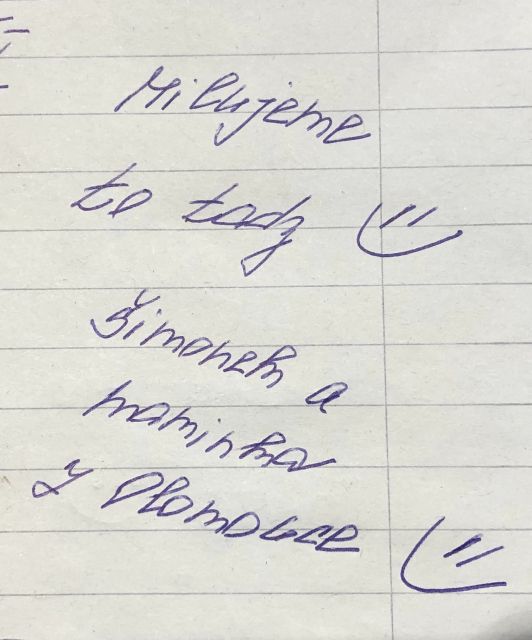 Milujeme
to tady
Šimonek a
maminka
z Olomouce